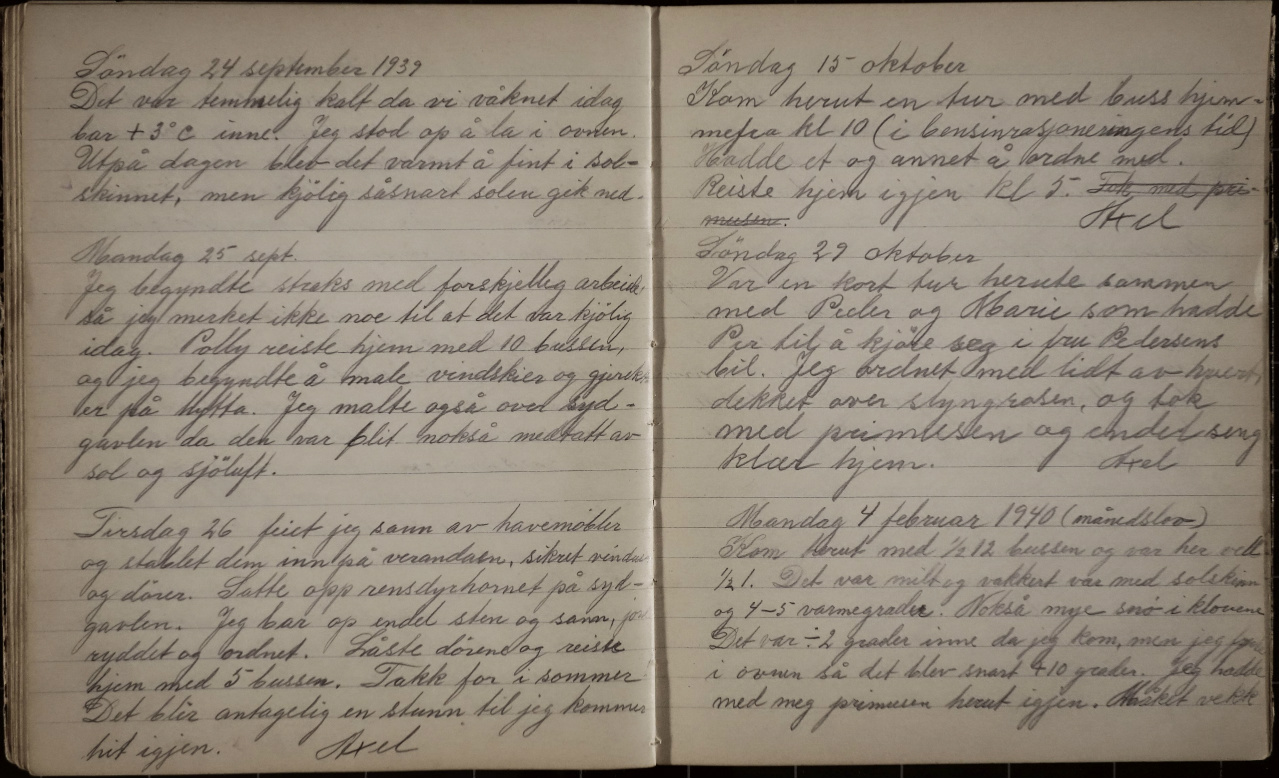 Söndag 24 september 1939
Det var temmelig kalt da vi våknet idag
bar + 3° c inne. Jeg stod op å la i ovnen.
Utpå dagen blev det varmt å fint i sol-
skinnet, men kjölig såsnart solen gik ned.
Mandag 25 sept.
Jeg begyndte straks med forskjellig arbeide
så jeg merket ikke noe til at det var kjölig
idag. Polly reiste hjem med 10 bussen,
og jeg begyndte å male vindskier og
er på Hytta. Jeg malte også over syd-
gavlen da den var blit nokså medtatt av
sol og sjöluft.
Tirsdag 26 feiet jeg sann av havemöbler
og stablet dem inn på verandaen, sikret vinduer
og dörer. Satte opp rensdyrhornet på syd-
gavlen. Jeg bar op endel sten og sann, jord
ryddet og ordnet. Låste dörene og reiste
hjem med 5 bussen. Takk for i sommer
Det blir antagelig en stunn til jeg kommer
hit igjen. Axel
Söndag 15 oktober
Kom herut en tur med buss hjem-
mefra kl 10 (i bensinrasjoneringens tid)
Hadde et og annet å ordne med.
Reiste hjem igjen kl 5. Tok med pri-
musen. Axel
Söndag 29 oktober
Var en kort tur herute sammen
med Peder og Marie som hadde
Per til å kjöre seg i fru Pedersens
bil. Jeg ordnet med lidt av hvert,
dekket over slyngrosen, og tok
med primusen og endel seng
klær hjem. Axel
Mandag 4 februar 1940 (månedslov)
Kom herut med ½ 12 bussen og var her ved
½ 1. Det var milt og vakkert vær med solskinn
og 4-5 varmegrader. Nokså mye snö i klovene
Det var ÷ 2 grader inne da jeg kom, men jeg fyrte
i ovnen så det blev snart +10 grader. Jeg hadde
med meg primusen herut igjen. Måket vekk